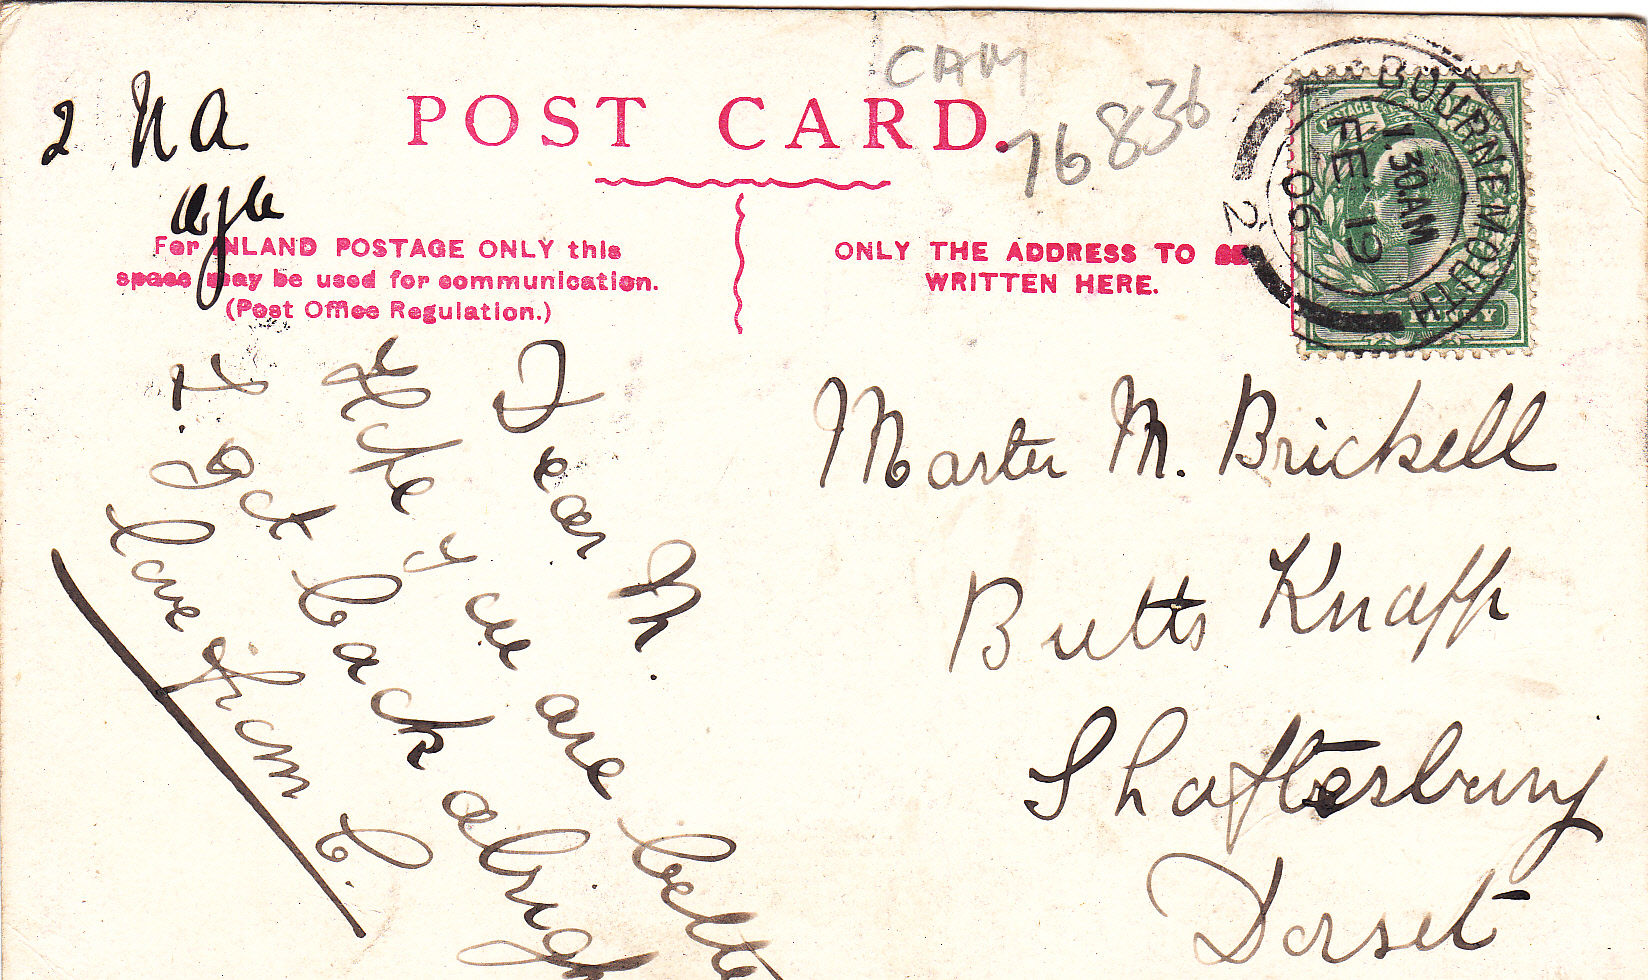 CAM
76836
2 Na
POST CARD.
For INLAND POSTAGE ONLY this
space may be used for communication.
(Post Office Regulation.)
ONLY THE ADDRESS TO BE
WRITTEN HERE.
BOURNEMOUTH
1.30AM
FE 19
06
2
PENNY
Dear M.
Hope you are bette
I. got back abrigh
love from C.
Master M. Brickell
Butts Knapp
Shaftesbury
Dorset